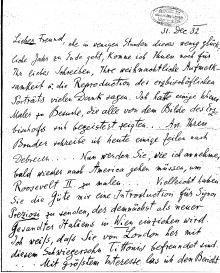 31. Dec 32
Lieber Freund, ehe in wenigen Stunden dieses wenig glück-
liche Jahr zu Ende geht, komme ich Ihnen noch für
Ihr liebes Schreiben, Ihre weihnachtliche Aufmerk-
samkeit u. die Reproduction des erzbischöflichen
Porträts vielen Dank sagen. Ich hatte einige
Maler zu Besuche, die alle von dem Bilde des Erz-
bischofs sich begeistert zeigten. An Ihren
Bruder schreibe ich heute einige Zeilen nach
Debrecen... Nun werden Sie, wie ich annehme,
bald wieder nach America gehen müssen, um
Roosevelt II. zu malen. Vielleicht haben
Sie die Güte mir eine Introduction für Signor
Preziosi zu senden, der demnächst als neuer
Gesandter Italiens in Wien einziehen wird.
Ich weiß, dass Sie von London her mit
diesem Schwiegersohn befreundet sind.
Mit größtem Interesse las ich den Bericht